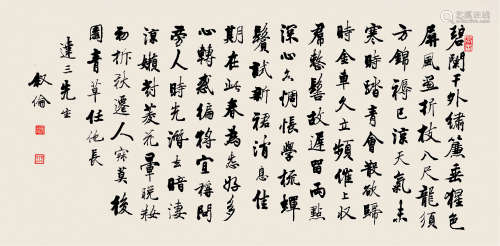 碧闌干外繡簾垂猩色
屏風畫折枝八尺龍須
方錦褥已涼天氣未
寒時踏青會散欲歸
時金車久立頻催上收
裙整髻故遲留兩點
深心各惆悵學梳蟬
鬢試新裙消息佳
期在此春為愛好多
心轉惑徧將宜稱問
旁人時光潛去暗淒
涼嬾對菱花暈晚妝
初拆秋遷人寂寞後
園青草任他長
達三先生
叙倫